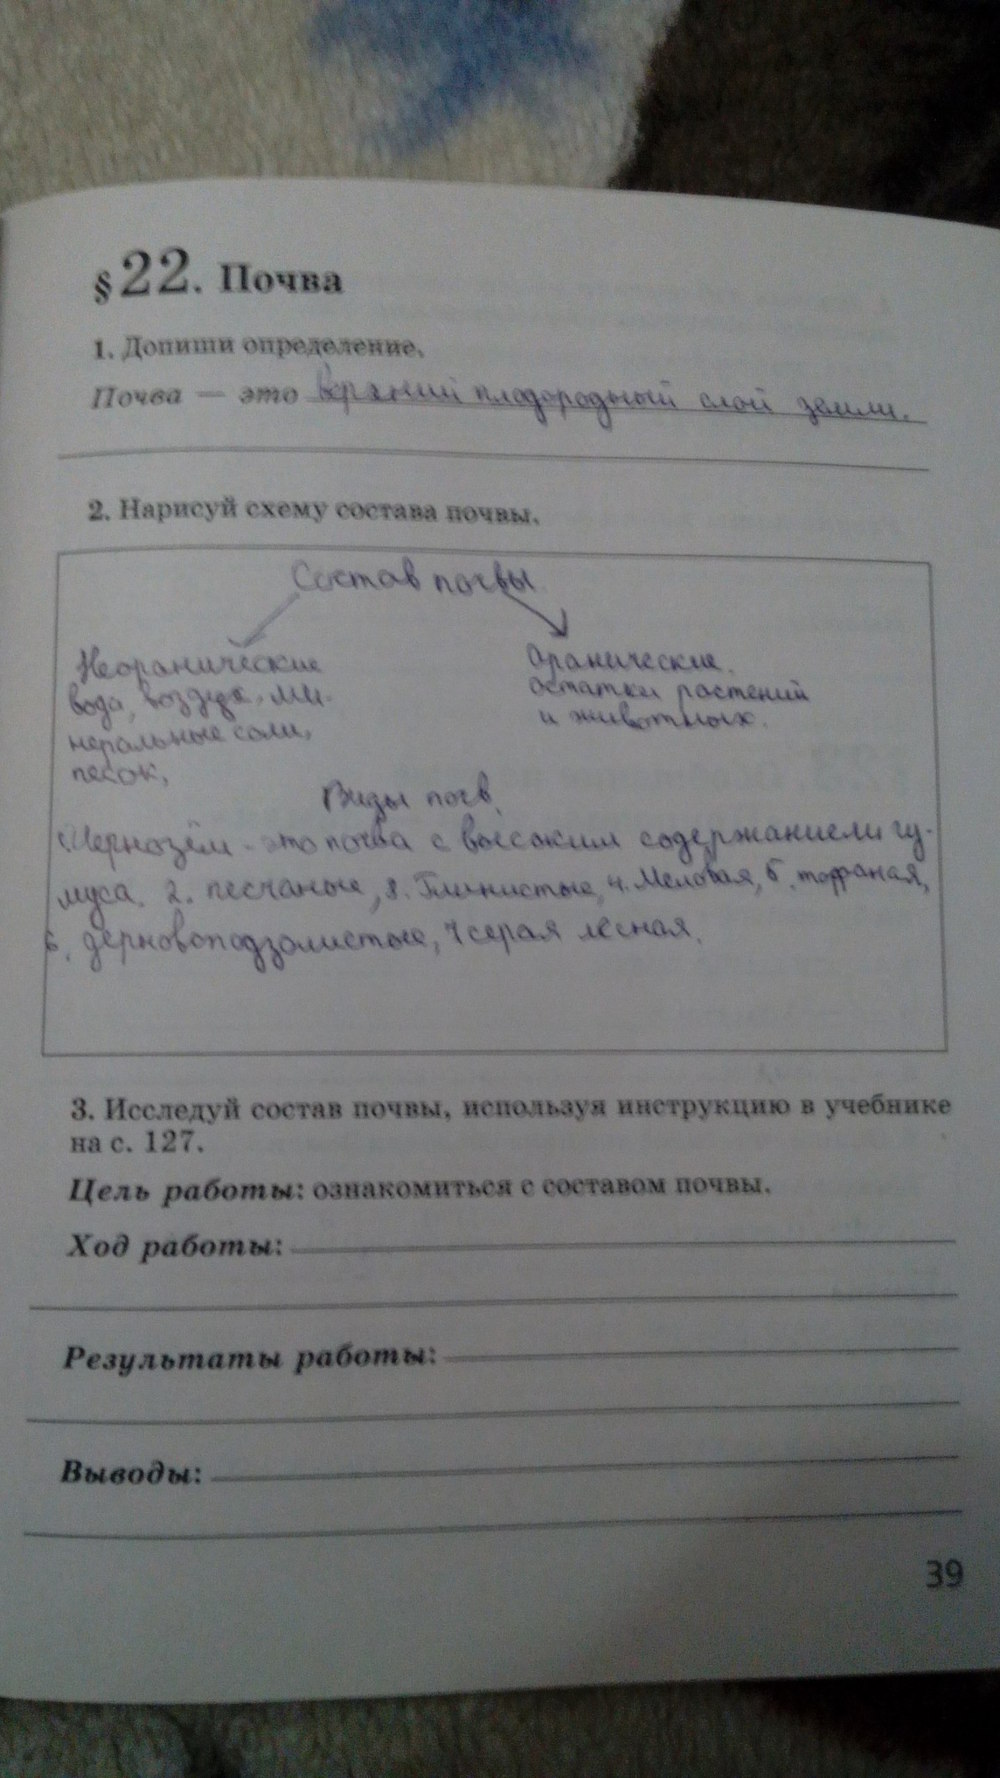 § 22. Почва
1. Допиши определение.
Почва — это верхний плодородный слой земли.
2. Нарисуй схему состава почвы.
Состав почвы
Неорганические Органические.
вода, воздух, ми- остатки растений
неральные соли, и животных.
песок,
Виды почв.
1. Чернозём - это почва с высоким содержанием гу-
муса. 2. песчаные, 3. Глинистые, 4. Меловая, 5. торфаная,
6. дерновоподзолистые, 7 серая лесная.
3. Исследуй состав почвы, используя инструкцию в учебнике
на с. 127.
Цель работы: ознакомиться с составом почвы.
Ход работы:
Результаты работы:
Выводы:
39